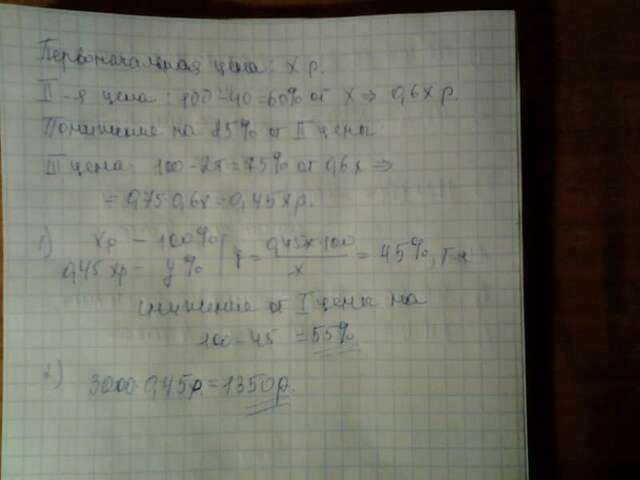 Первоначальная цена: x р.
II-я цена: 100-40=60% от x ⇒ 0,6x р.
Понижение на 25% от II цены
III цена: 100-25=75% от 0,6x ⇒
= 0,75·0,6x=0,45x р.
1) xр - 100%
0,45xр - y% y = 0,45x·100 / x = 45%, т.к
снижение от I цены на
100-45 = 55%
2) 3000·0,45р.=1350р.